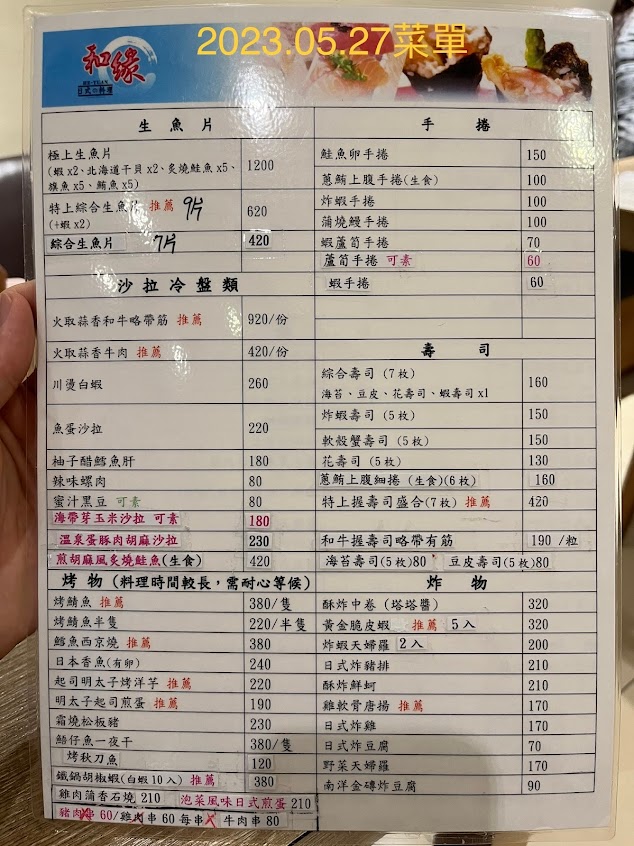 2023.05.27菜單
和緣
HE-YUAN
日式の料理
生魚片
極上生魚片 1200
(蝦x2、北海道干貝x2、炙燒鮭魚x5、
旗魚x5、鮪魚x5)
特上綜合生魚片 推薦 9片 620
(+蝦x2)
綜合生魚片 7片 420
沙拉冷盤類
火取蒜香和牛略帶筋 推薦 920/份
火取蒜香牛肉 推薦 420/份
川燙白蝦 260
魚蛋沙拉 220
柚子醋鱈魚肝 180
辣味螺肉 80
蜜汁黑豆 可素 80
海帶芽玉米沙拉 可素 180
溫泉蛋豚肉胡麻沙拉 230
煎胡麻風炙燒鮭魚(生食) 420
烤物(料理時間較長,需耐心等候)
烤鯖魚 推薦 380/隻
烤鯖魚半隻 220/半隻
鱈魚西京燒 推薦 380
日本香魚(有卵) 240
起司明太子烤洋芋 推薦 220
明太子起司煎蛋 推薦 190
霜燒松板豬 230
鯃仔魚一夜干 380/隻
烤秋刀魚 120
鐵鍋胡椒蝦(白蝦10入) 推薦 380
雞肉蒲香石燒 210 泡菜風味日式煎蛋 210
豬肉串 60/雞肉串 60 每串 牛肉串 80
手捲
鮭魚卵手捲 150
蔥鮪上腹手捲(生食) 100
炸蝦手捲 100
蒲燒鰻手捲 100
蝦蘆筍手捲 70
蘆筍手捲 可素 60
蝦手捲 60
壽司
綜合壽司(7枚) 160
海苔、豆皮、花壽司、蝦壽司x1
炸蝦壽司(5枚) 150
軟殼蟹壽司(5枚) 150
花壽司(5枚) 130
蔥鮪上腹細捲(生食)(6枚) 160
特上握壽司盛合(7枚) 推薦 420
和牛握壽司略帶有筋 190/粒
海苔壽司(5枚)80 豆皮壽司(5枚)80
炸物
酥炸中卷(塔塔醬) 320
黃金脆皮蝦 推薦 5入 320
炸蝦天婦羅 2入 200
日式炸豬排 210
酥炸鮮蚵 210
雞軟骨唐揚 推薦 170
日式炸雞 170
日式炸豆腐 70
野菜天婦羅 170
南洋金磚炸豆腐 90